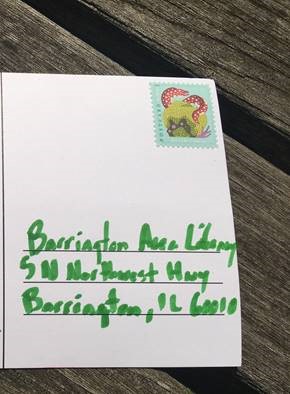 Barrington Area Library
511 Northwest Hwy
Barrington, IL 60010